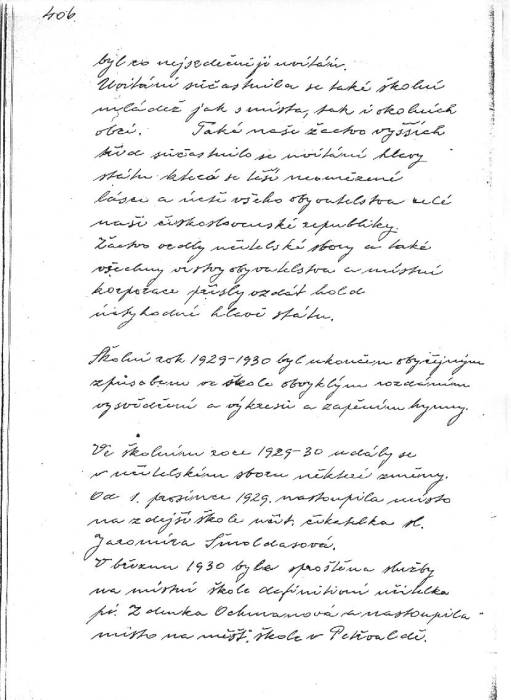 406.
byl co nejsrdečněji uvítán.
Uvítání súčastnila se také školní
mládež jak z místa, tak i okolních
obcí. Také naše žactvo vyšších
tříd súčastnilo se uvítání hlavy
státu která se těší neomezené
lásce a úctě všeho obyvatelstva celé
naší československé republiky.
Žactvo vedly učitelské sbory a také
všechny vrstvy obyvatelstva a místní
korporace přišly vzdát hold
úctyhodné hlavě státu.
Školní rok 1929-1930 byl ukončen obyčejným
způsobem ve škole obvyklým rozdáním
vysvědčení a výkresů a zapěním hymny.
Ve školním roce 1929-30 udály se
v učitelském sboru některé změny.
Od 1. prosince 1929. nastoupila místo
na zdejší škole učit. čekatelka sl.
Jaromíra Šmoldasová.
V březnu 1930 byla sproštěna služby
na místní škole definitivní učitelka
pí. Zdenka Ochmanová a nastoupila
místo na měšť. škole v Petřvaldě.